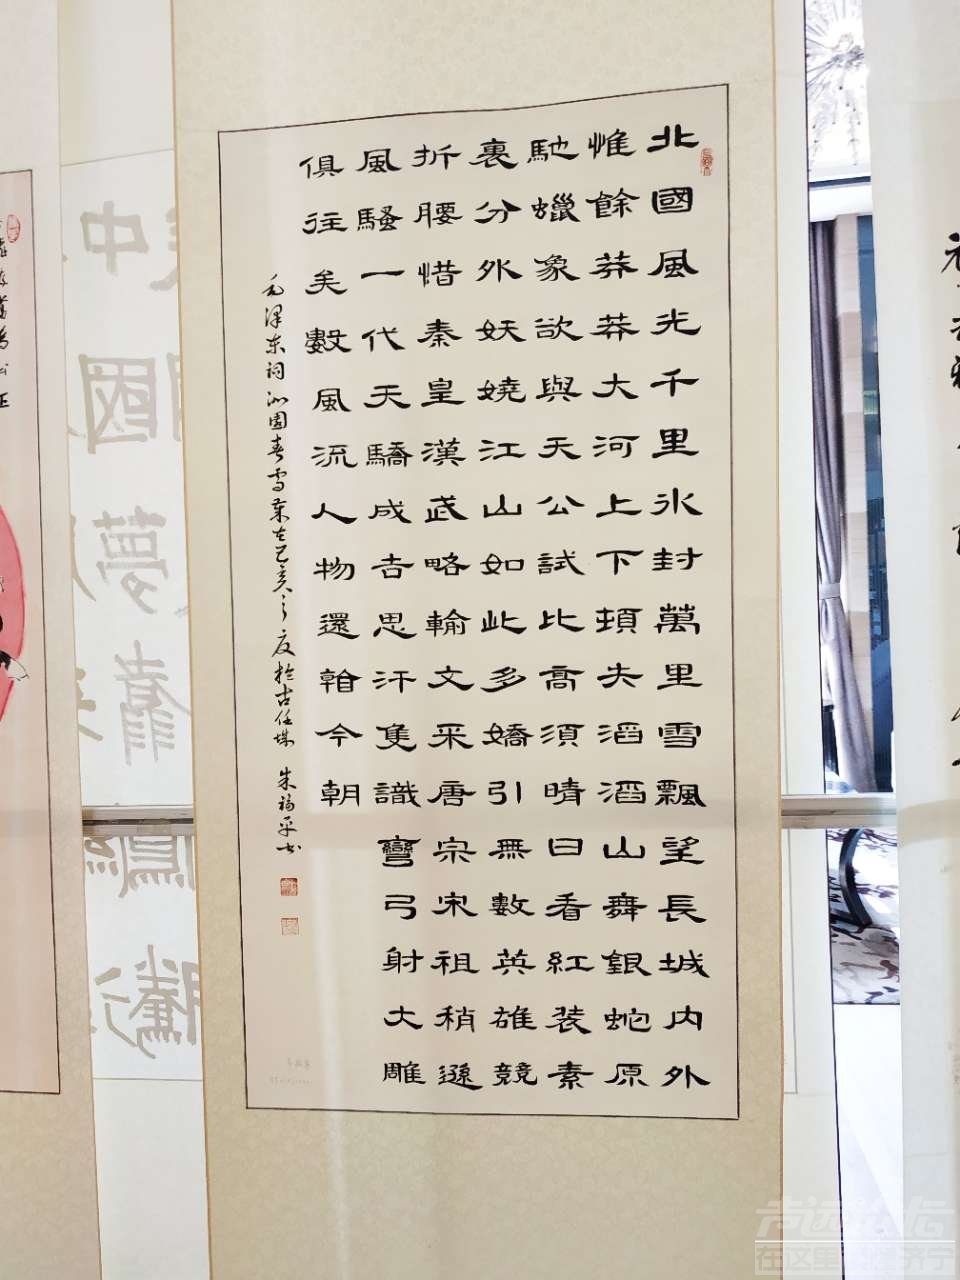 北國風光千里氷封萬里雪飄望長城内外
惟餘莽莽大河上下頓失滔滔山舞銀蛇原
馳蠟象欲與天公試比高須晴日看紅装素
裹分外妖嬈江山如此多嬌引無數英雄競
折腰惜秦皇漢武略輸文采唐宗宋祖稍遜
風騷一代天驕成吉思汗隻識彎弓射大雕
俱往矣數風流人物還看今朝
毛泽东词沁园春雪 在己亥之夏於古任城 朱福平书
中國夢